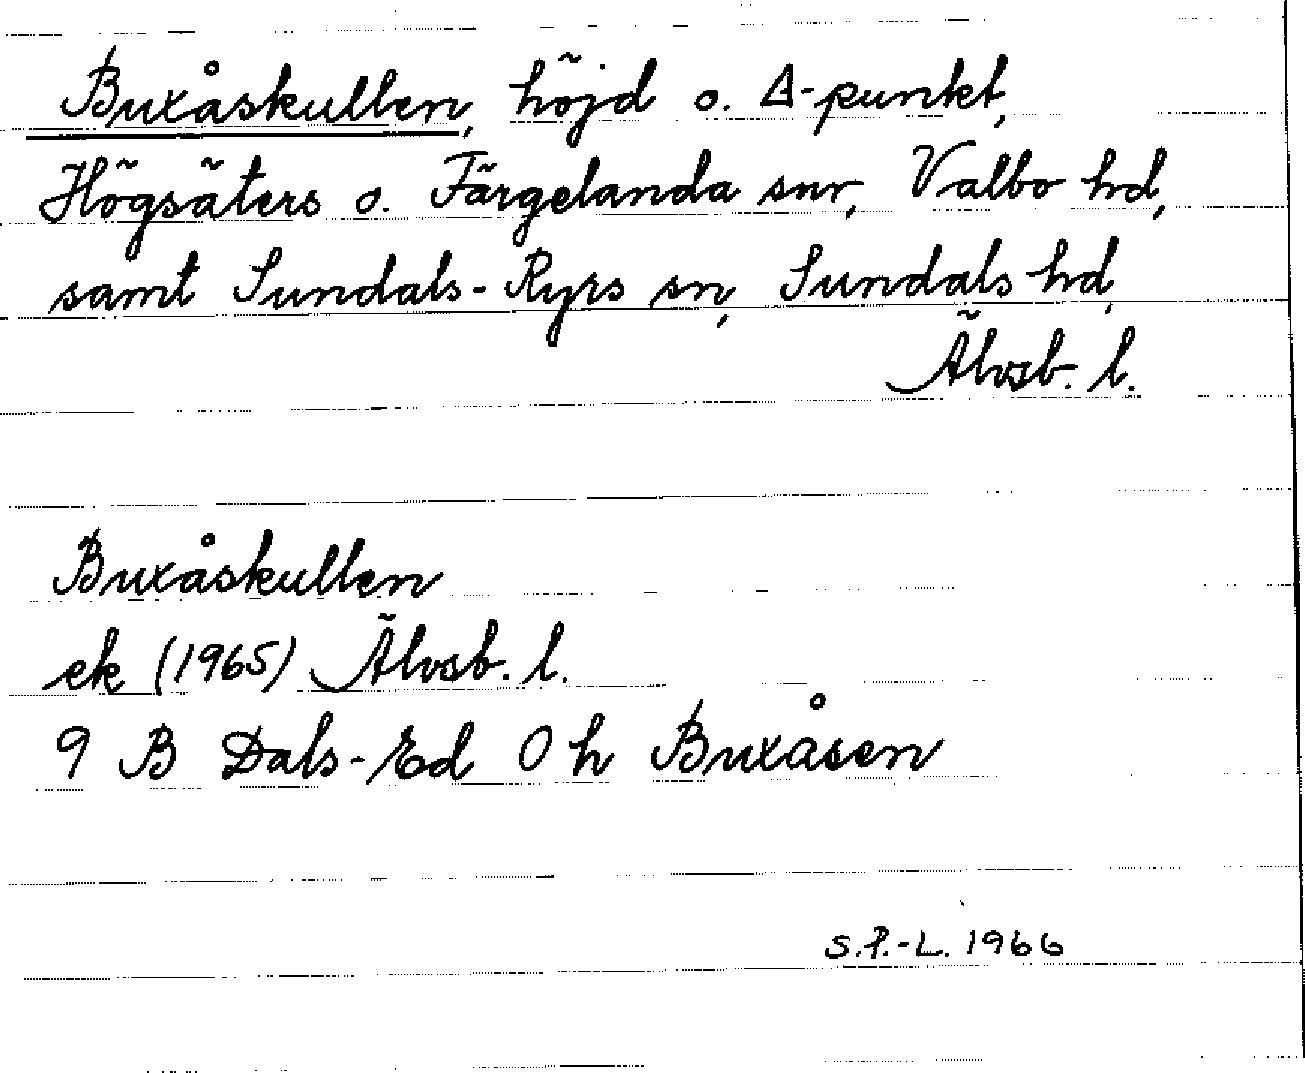 Buxåskullen, höjd o. Δ-punkt,
Högsäters o. Färgelanda snr, Valbo hd,
samt Sundals-Ryrs sn, Sundals hd,
Älvsb. l.
Buxåskullen
ek (1965) Älvsb. l.
9 B Dals-Ed 0 h Buxåsen
S.P.-L. 1966